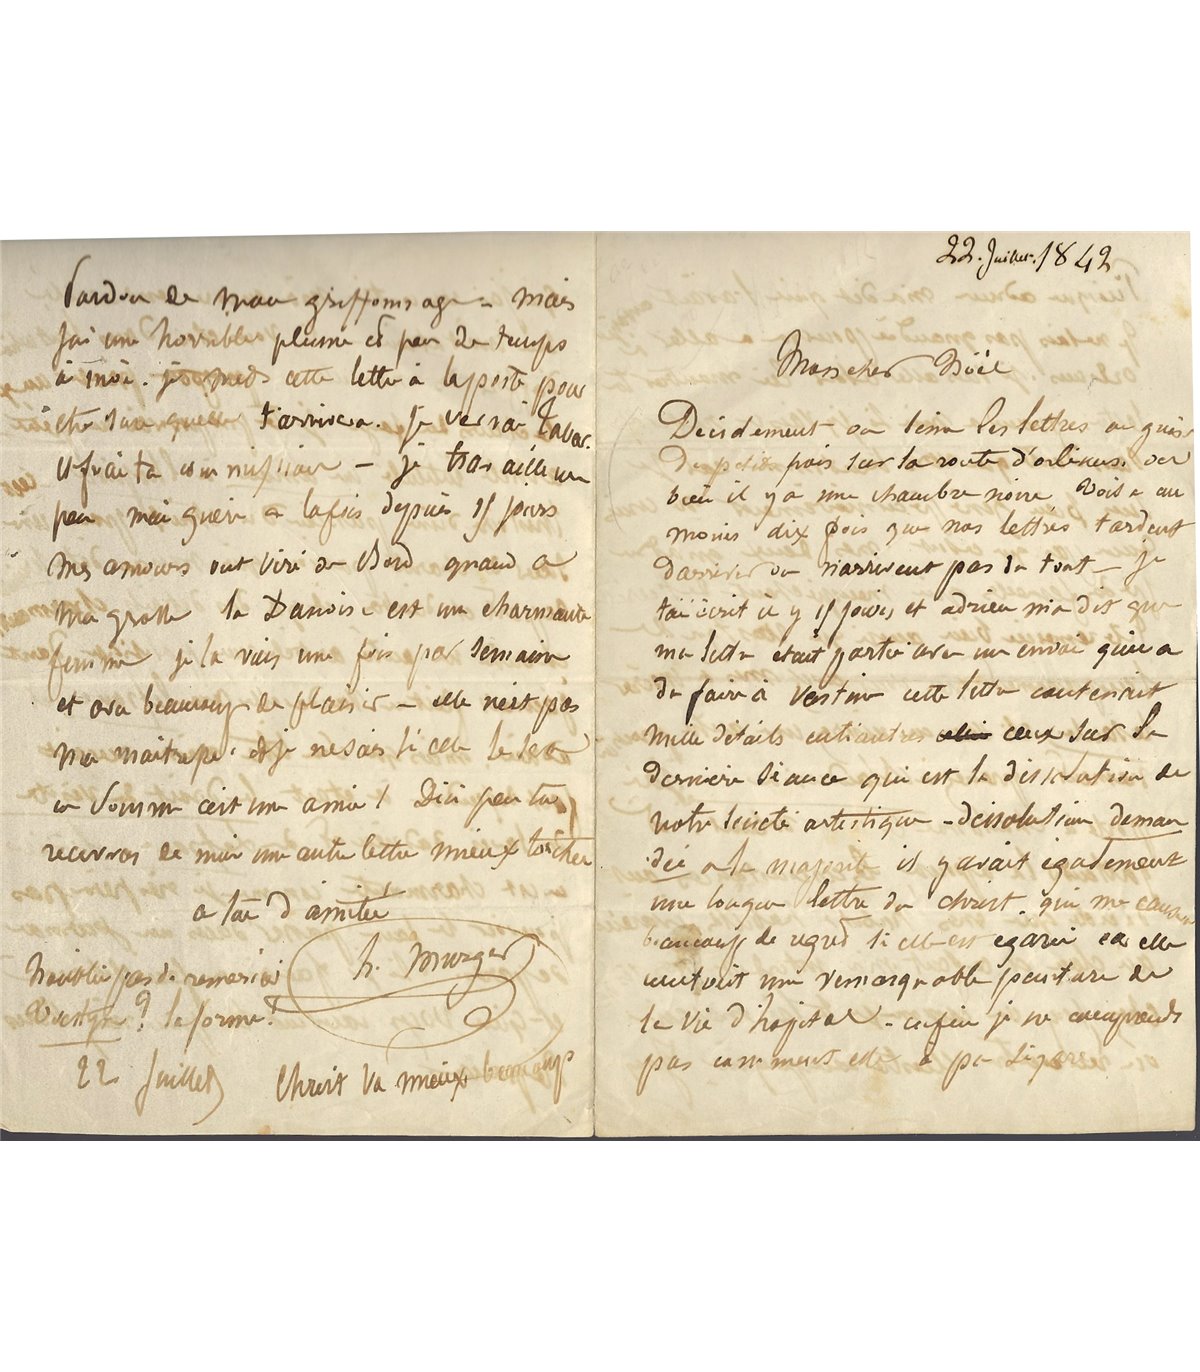 22. Juillet. 1842
Mon cher Noël
Décidement on sème les lettres en guise
de petits pois sur la route d'orléans. ou
bien il y a une chambre noire voisine au
moins dix fois que nos lettres tardent
d'arriver ou n'arrivent pas du tout – je
t'ai écrit il y 15 jours, et adrien m'a dit que
ma lettre était partie avec un envoi qu'il a
du faire à cette lettre contenait
mille détails entr'autres ceux sur la
dernière séance qui est la dissolution de
notre société artistique – dissolution deman
dée a la majorité il y avait également
une longue lettre de christ. qui me cause
beaucoup de regret si elle est égarée car elle
contenait une remarquable peinture de
la vie d'hopital – enfin je ne comprends
pas comment elle a pu s'égarer
Pardon de mon griffonnage – mais
j'ai une horrible plume et peu de temps
à moi. je mets cette lettre à la poste pour
etre sur quelle t'arrivera. Je verrai Tabar.
et ferai ta commission – je travaille un
peu mais guère a la fois depuis 15 jours
mes amours ont viré de bord quand a
ma la Danoise est une charmante
femme je la vois une fois par semaine
et avec beaucoup de plaisir – elle n'est pas
ma maitresse. et je ne sais si elle le sera
en somme c'est une amie! D'ici peu tu
recevras de moi une autre lettre mieux torchée
a toi d'amitié
h. Murger
N'oublie pas de remercier
? la forme!
22 Juillet
Christ va mieux beaucoup